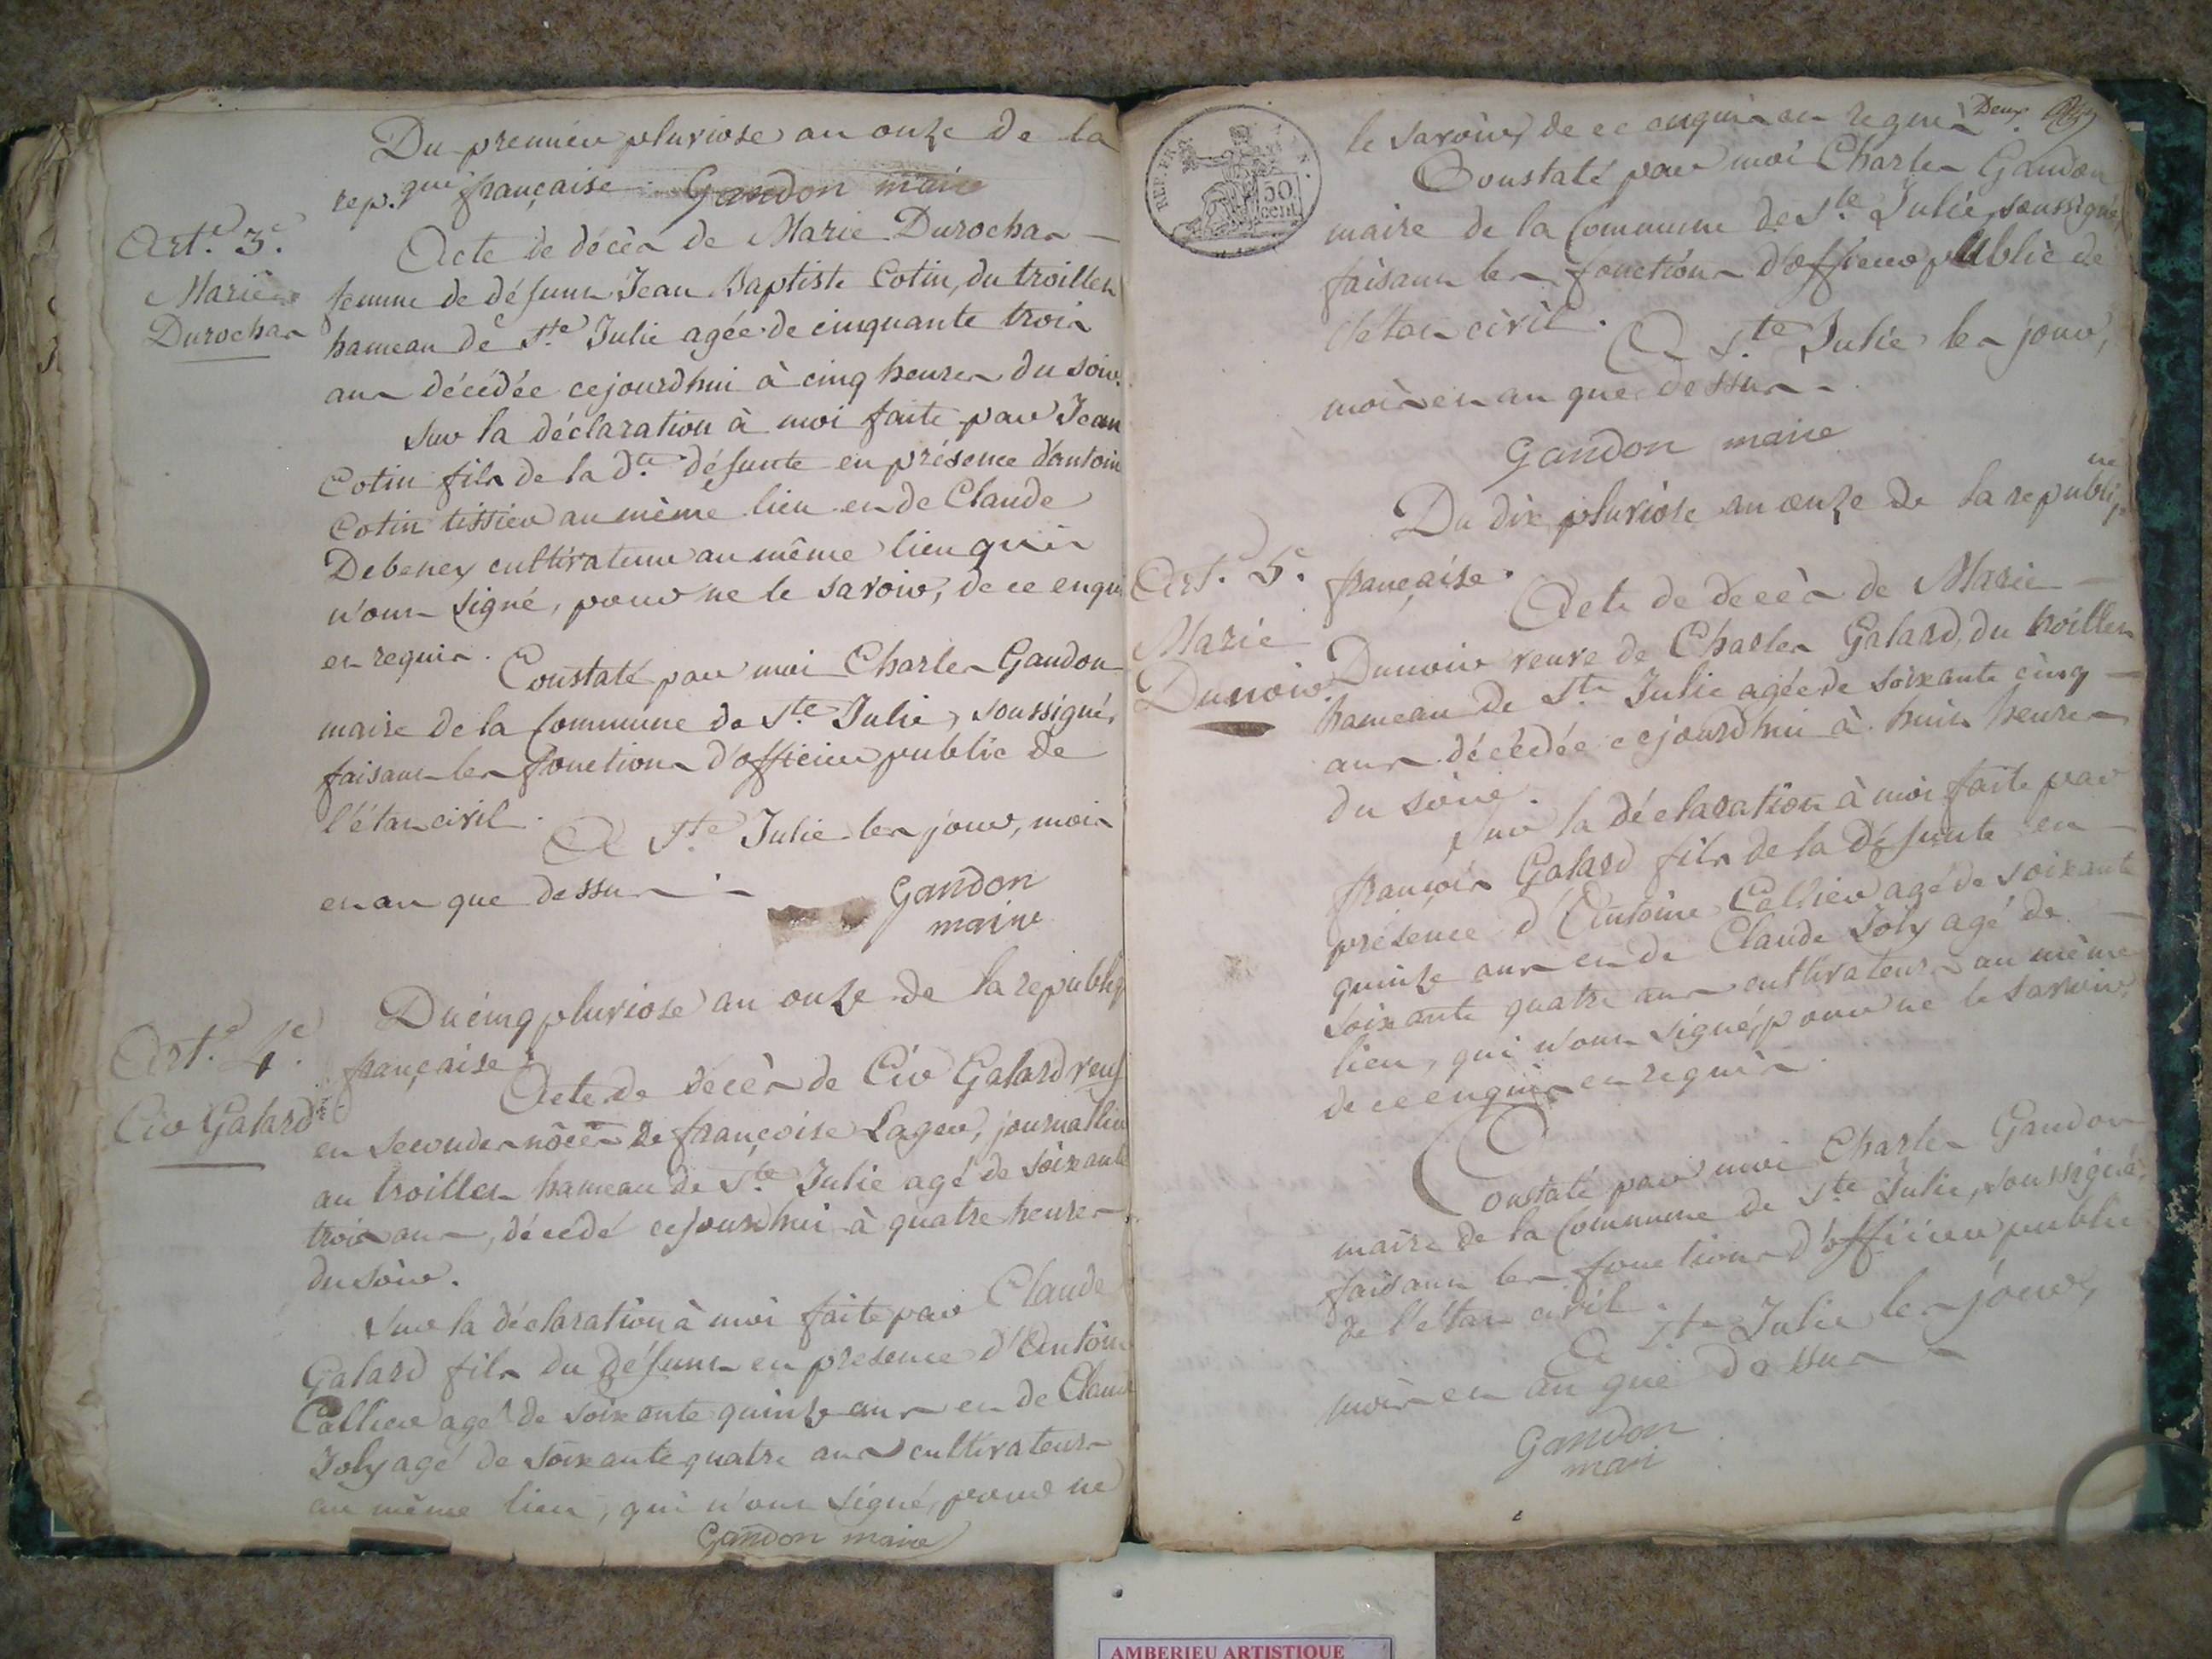 Du premier pluviose an onze de la
rep.que française. Gandon maire
Art.e 3.e
Marie
Durochas
Acte de décès de Marie Durochas
femme de défunt Jean Baptiste Cotin, du troillet
hameau de Ste Julie agée de cinquante trois
ans décédée cejourdhui à cinq heures du soir.
Sur la déclaration à moi faite par Jean
Cotin fils de la dte défunte en présence d'antoine
Cotin tissier au même lieu et de Claude
Debeney cultivateur au même lieu qui
n'ont signé, pour ne le savoir, de ce enquis
et requis.
Constaté par moi Charles Gandon
maire de la Commune de Ste Julie, soussigné,
faisant les fonctions d'officier public de
l'état civil.
A Ste Julie les jour, mois
et an que dessus.
Gandon
maire
Du cinq pluviose an onze de la republiq
française.
Art.e 4.e
Civ Galard
Acte de décès de Civ Galard veuf
en secondes nôces de françoise Lager, journallier
au troillet hameau de Ste Julie agé de soixante
trois ans, décédé cejourdhui à quatre heures
du soir.
Sur la déclaration à moi faite par Claude
Galard fils du défunt en presence d'Antoine
Callier agé de soixante quinze ans et de Claude
Joly agé de soixante quatre ans cultivateurs
au même lieu, qui n'ont signé, pour ne
Gandon maire
REP. FRA.
50
cent.
Deux
le savoir, de ce enquis et requis
Constaté par moi Charles Gandon
maire de la Commune de Ste Julie, soussigné,
faisant les fonctions d'officier public de
l'état civil.
A Ste Julie les jour,
mois et an que dessus.
Gandon maire
Du dix pluviose an onze de la republique
française.
Art. 5.e
Marie
Dunoir
Acte de décès de Marie
Dunoir veuve de Charles Galard, du troillet
hameau de Ste Julie agée de soixante cinq
ans décédée cejourdhui à huit heures
du soir.
Sur la déclaration à moi faite par
françois Galard fils de la défunte en
présence d'Antoine Callier agé de soixante
quinze ans et de Claude Joly agé de
soixante quatre ans cultivateurs au même
lieu, qui n'ont signé, pour ne le savoir,
de ce enquis et requis.
Constaté par moi Charles Gandon
maire de la Commune de Ste Julie, soussigné,
faisant les fonctions d'officier public
de l'état civil.
A Ste Julie les jour,
mois et an que dessus
Gandon
mari
AMBERIEU ARTISTIQUE